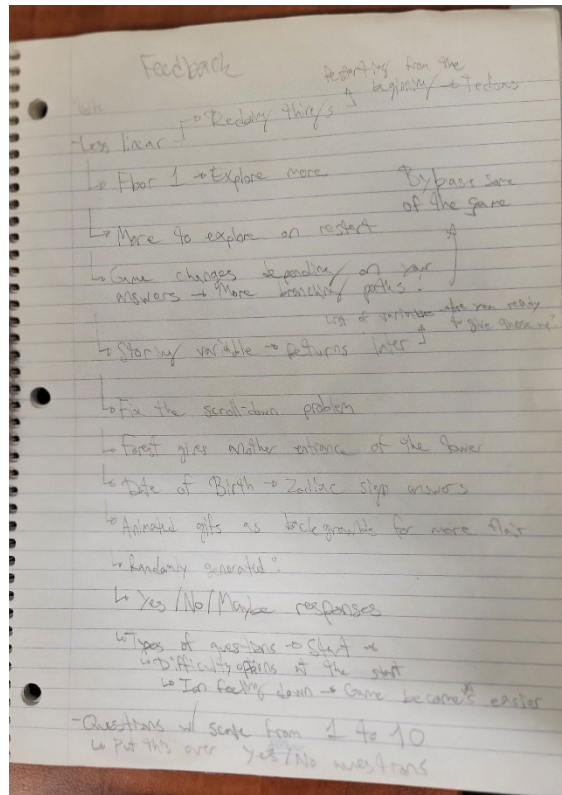 Feedback
Restarting from the
beginning → Tedious
-Less linear → Redoing things
↳ Floor 1 → Explore more
Bypass some
of the game
↳ More to explore on restart
↳ Game changes depending on your
answers → More branching paths.
List of variables are you ready
to give these up?
↳ Storing variable → Returns later
↳ Fix the scroll-down problem
↳ Forest gives another entrance of the tower
↳ Date of Birth → Zodiac sign answers
↳ Animated gifs as backgrounds for more flair
↳ Randomly generated?
↳ Yes/No/Maybe responses
↳ Types of questions → Start
↳ Difficulty options at the start
↳ I'm feeling down → Game becomes easier
-Questions w/ scale from 1 to 10
↳ Put this over Yes/No questions